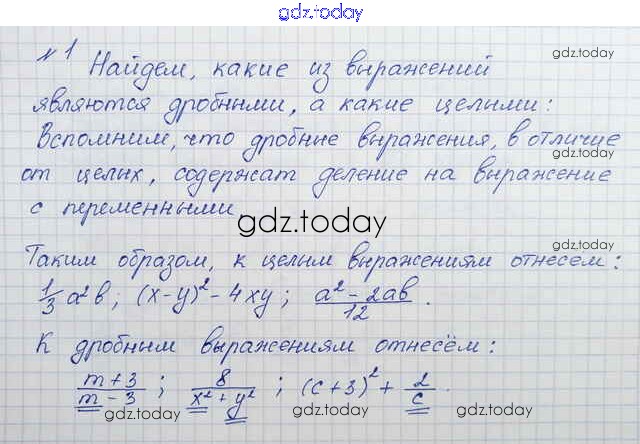 gdz.today
№1
gdz.today
Найдем, какие из выражений
являются дробными, а какие целыми:
Вспомним, что дробные выражения, в отличие
gdz.today
от целых, содержат деление на выражение
с переменными
gdz.today
gdz.today
Таким образом, к целым выражениям отнесем:
1/3 a²b; (x-y)² - 4xy; (a² - 2ab)/12.
gdz.today
К дробным выражениям отнесём:
(m+3)/(m-3); 8/(x²+y²); (c+3)² + 2/c.
gdz.today gdz.today gdz.today